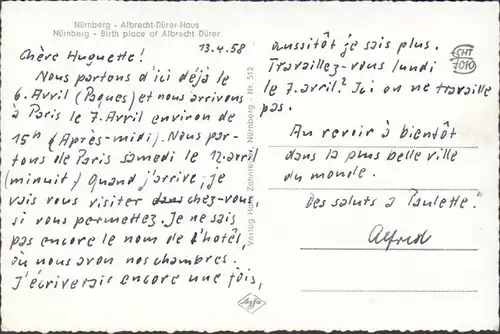 Nürnberg - Albrecht-Dürer-Haus
Nürnberg - Birth place of Albrecht Dürer
13.4.58
Chère Huguette!
Nous partons d'ici déjà le
6. Avril (Paques) et nous arrivons
à Paris le 7. Avril environ de
15h (Après-midi). Nous par-
tons de Paris samedi le 12. avril
(minuit) Quand j'arrive, je
vais vous visiter dans chez-vous,
si vous permettez. Je ne sais
pas encore le nom de l'hotel,
où nous avon nos chambres.
J'écriverais encore une fois,
Agfa
Nürnberg - Nr. 512
aussitôt je sais plus.
Travaillez-vous lundi
le 7. avril? Ici on ne travaille
pas.
Au revoir à bientôt
dans la plus belle ville
du monde.
Des saluts à Paulette.
Alfred